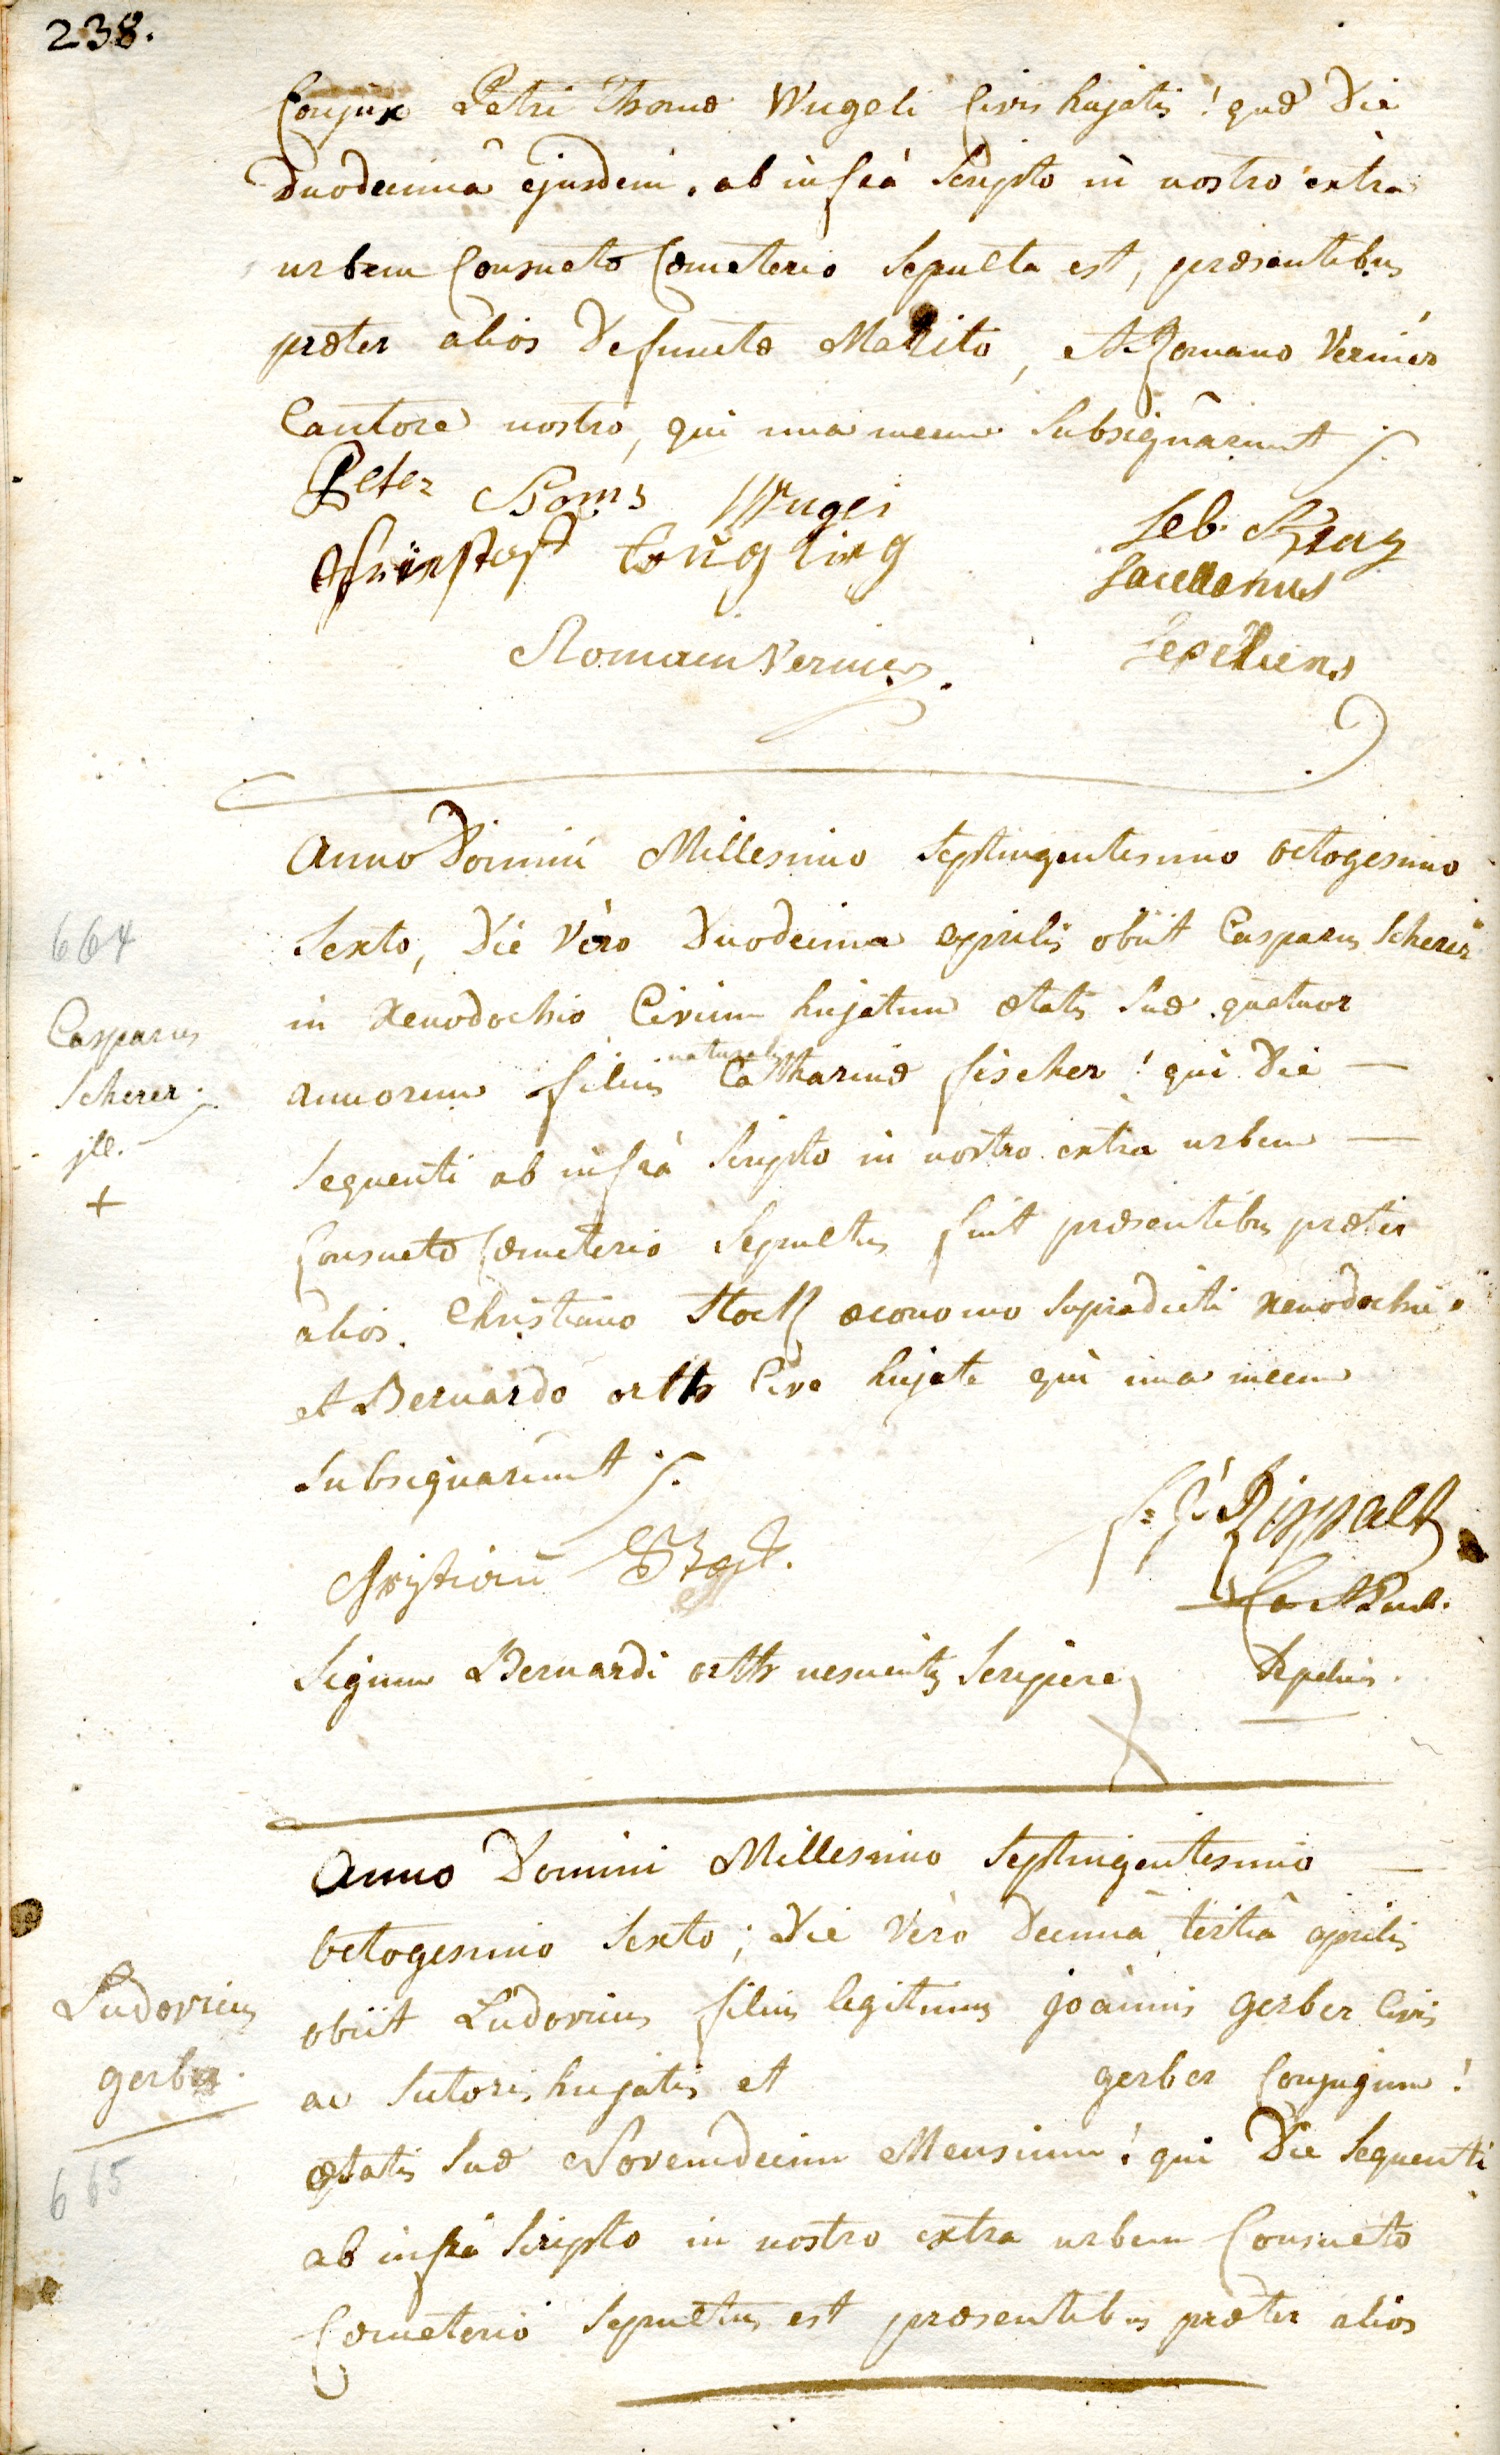 238.
Conjux Petri Thomæ Wugeli Civis hujatis! quæ Die
duodecimâ ejusdem, ab infrà Scripto in nostro extra
urbem Consueto Cœmeterio Sepulta est, præsentibus
præter alios Defunctæ Marito, et Romano Vernier
Cantore nostro, qui una mecum Subsignârunt
Peter Thoms Wugli
Seb. Krag
Sacellanus
Romain Vernier.
Sepeliens
Anno Domini Millesimo Septingentesimo octogesimo
664
Sexto, Die Vèro Duodecima aprilis obiit Casparus Scherer
Casparus
Scherer
ill.
+
in Xenodochio Civium hujatum ætatis Suæ quatuor
annorum filius naturalis Catharinæ fischer! qui Die —
Sequenti ab infrà Scripto in nostro extra urbem —
Consueto Cœmeterio Sepultus fuit præsentibus præter
alios. Christiano Stoll œconomo Supradicti Xenodochii
et Bernardo orth Cive hujate qui una mecum
Subsignarunt
Rippalt
Sepeliens.
Signum Bernardi orth nescientis Scripere
Anno Domini Millesimo Septingentesimo —
octogesimo Sexto; Die Vèro Decimâ tertiâ aprilis
Ludovicus
gerber.
665
obiit Ludovicus filius legitimus joannis gerber Civis
ac Sutoris hujatis et gerber Conjugum!
ætatis Suæ Novemdecim Mensium! qui Die Sequenti
ab infrà Scripto in nostro extra urbem Consueto
Cœmeterio Sepultus est præsentibus præter alios